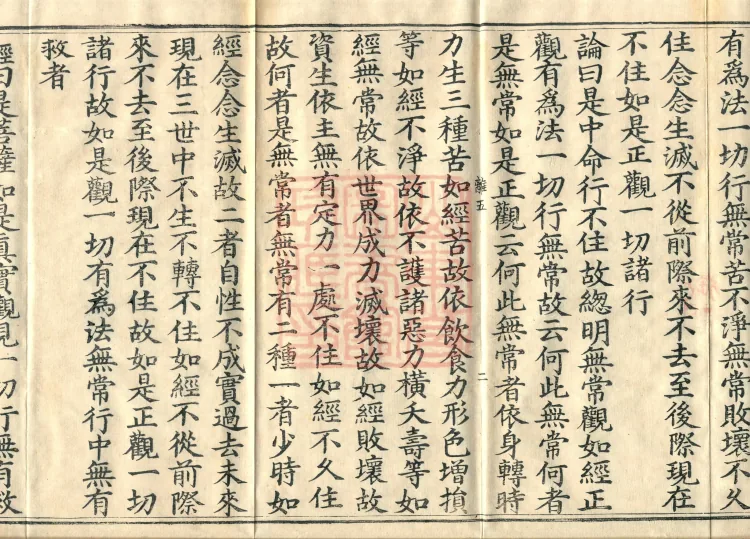 有為法一切行無常苦不淨無常敗壞不久
住念念生滅不從前際來不去至後際現在
不住如是正觀一切諸行
論曰是中命行不住故緫明無常觀如經正
觀有為法一切行無常故云何此無常何者
是無常如是正觀云何此無常者依身轉時
雜五
二
力生三種苦如經苦故依飲食力形色增損
等如經不淨故依不護諸惡力橫夭壽等如
經無常故依世界成力滅壞故如經敗壞故
資生依主無有定力一處不住如經不久住
故何者是無常者無常有二種一者少時如
經念念生滅故二者自性不成實過去未來
現在三世中不生不轉不住如經不從前際
來不去至後際現在不住故如是正觀一切
諸行故如是觀一切有為法無常行中無有
救者
經曰是菩薩如是真實觀見一切行無有救